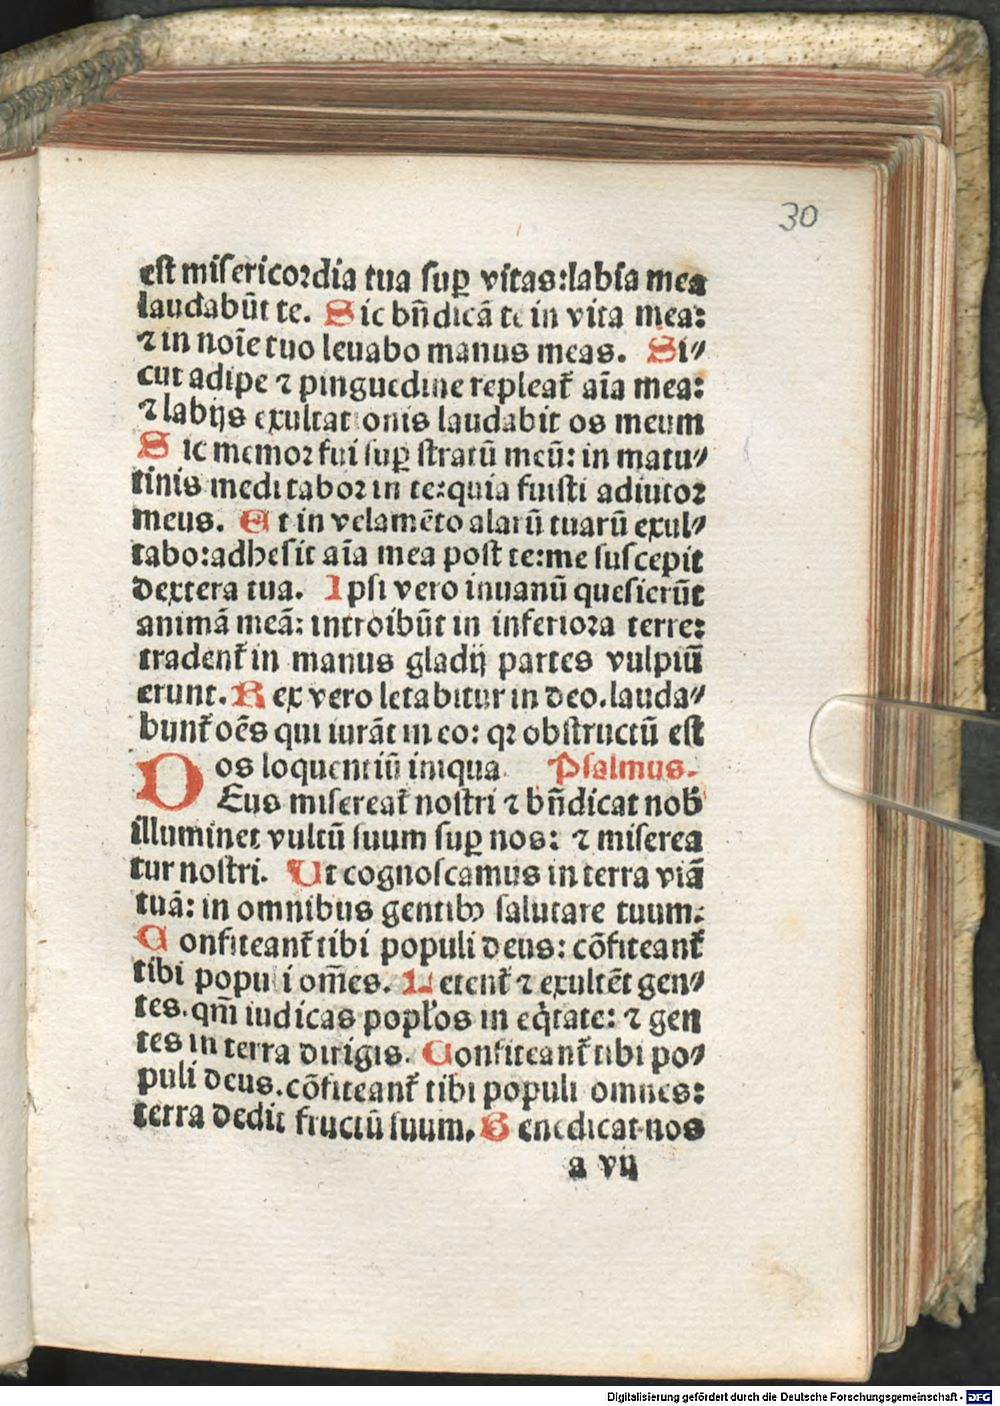 30
est misericordia tua suꝑ vitas:labia mea
laudabūt te. Sic bn̄dicā te in vita mea:
⁊ in noīe tuo leuabo manus meas. Si⸗
cut adipe ⁊ pinguedine repleat᷑ aīa mea:
⁊ labijs exultationis laudabit os meum
Sic memoꝛ fui suꝑ stratū meū: in matu⸗
tinis meditaboꝛ in te:quia fuisti adiutoꝛ
meus. Et in velamēto alarū tuarū exul⸗
tabo:adhesit aīa mea post te:me suscepit
dextera tua. Ipsi vero inuanū quesierūt
animā meā: introibūt in inferioꝛa terre:
tradent᷑ in manus gladij partes vulpiū
erunt. Rex vero letabitur in deo.lauda⸗
bunt᷑ oēs qui iurāt in eo: qꝛ obstructū est
os loquentiū iniqua Psalmus.
DEus misereat᷑ nostri ⁊ bn̄dicat nob̾
illuminet vultū suum suꝑ nos: ⁊ miserea
tur nostri. Ut cognoscamus in terra viā
tuā: in omnibus gentibꝰ salutare tuum.
Confiteant᷑ tibi populi deus: cōfiteant᷑
tibi populi om̄es. Letent᷑ ⁊ exultēt gen⸗
tes.qm̄ iudicas popl̓os in eq̇tate: ⁊ gen
tes in terra dirigis. Confiteant᷑ tibi po⸗
puli deus.cōfiteant᷑ tibi populi omnes:
terra dedit fructū suum. Benedicat nos
a vij
Digitalisierung gefördert durch die Deutsche Forschungsgemeinschaft - DFG